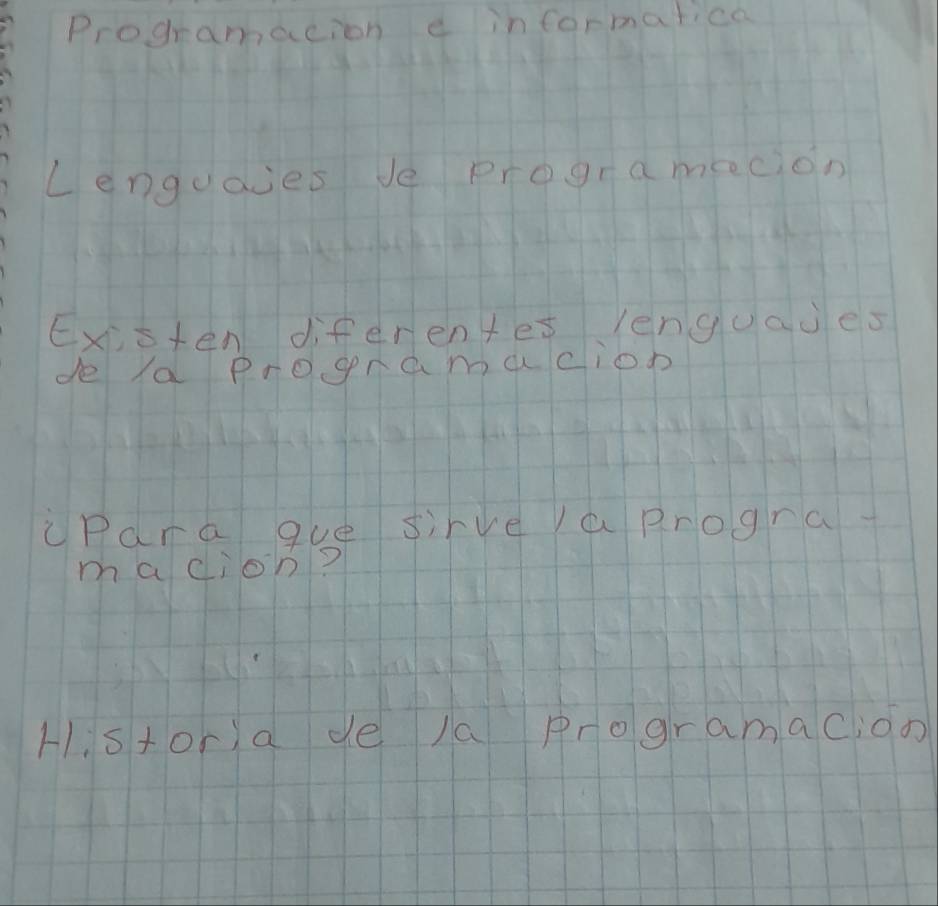 Programacion e informatica
Lenguajes de programación
Existen diferentes lenguajes
de la programacion
¿Para que sirve la progra-
macion?
Historia de la programación